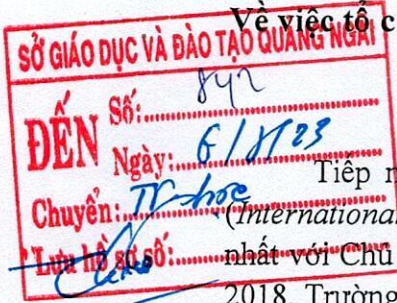 Về việc tổ c
SỞ GIÁO DỤC VÀ ĐÀO TẠO QUẢNG NGÃI
ĐẾN
Số:
Ngày: 6/8/23
Chuyển:
Lưu hồ sơ số:
Tiếp n
(International
nhất với Chủ
2018 Trường